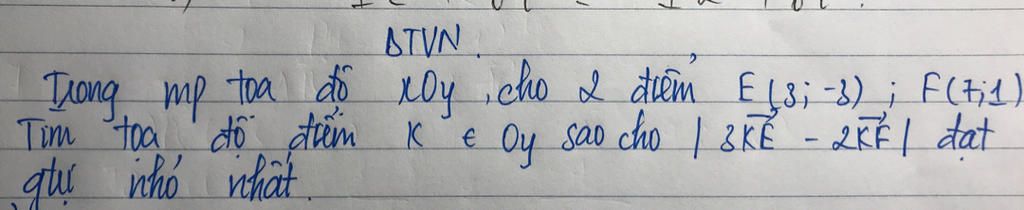 BTVN.
Trong mp toa độ xOy, cho 2 điểm E(3; -3) ; F(7;1)
Tìm toa độ điểm K ∈ Oy sao cho | 3KE→ - 2KF→ | đạt
gtrị nhỏ nhất.